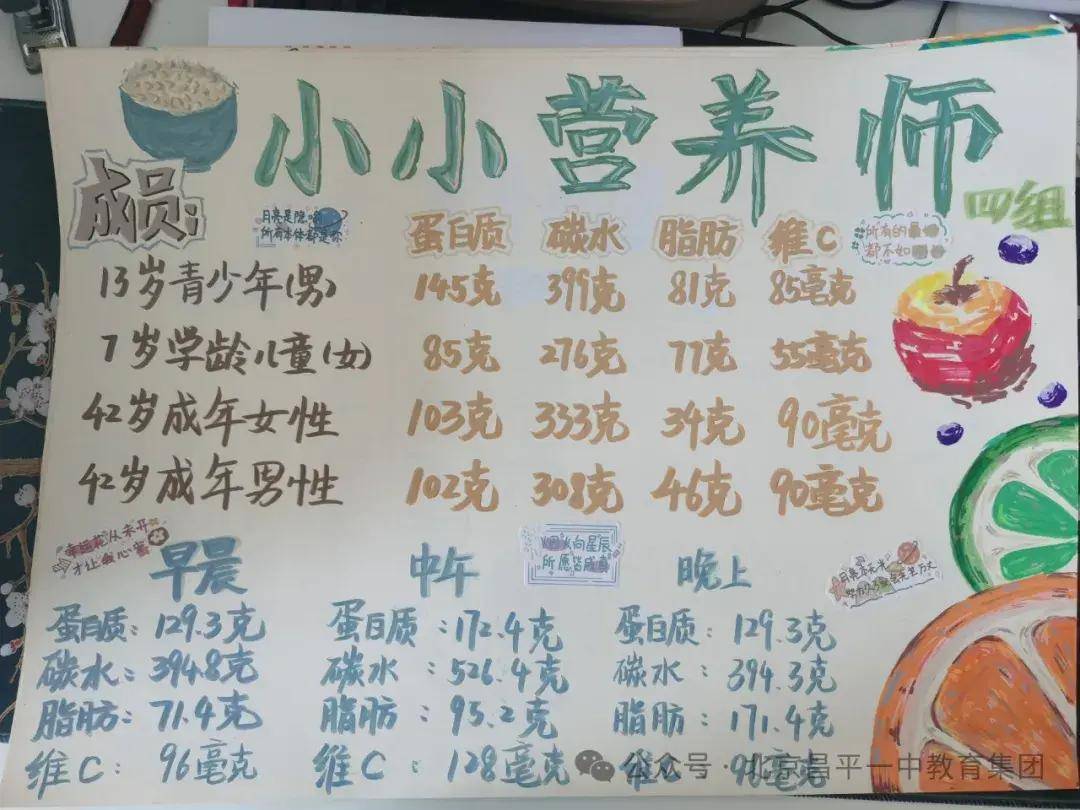 小小营养师
四组
成员:
月亮是隐喻
所有本体都是你
蛋白质 碳水 脂肪 维C
所有的
都不如
13岁青少年(男) 145克 399克 81克 85毫克
7岁学龄儿童(女) 85克 276克 77克 55毫克
42岁成年女性 103克 333克 34克 90毫克
42岁成年男性 102克 308克 46克 90毫克
从未开
才让我心
向星辰
所愿皆成
早晨 中午 晚上
蛋白质: 129.3克 蛋白质:172.4克 蛋白质:129.3克
碳水: 394.8克 碳水:526.4克 碳水:394.3克
脂肪: 71.4克 脂肪:95.2克 脂肪:171.4克
维C: 96毫克 维C:128毫克 维C: 9 毫克
公众号·北京昌平一中教育集团